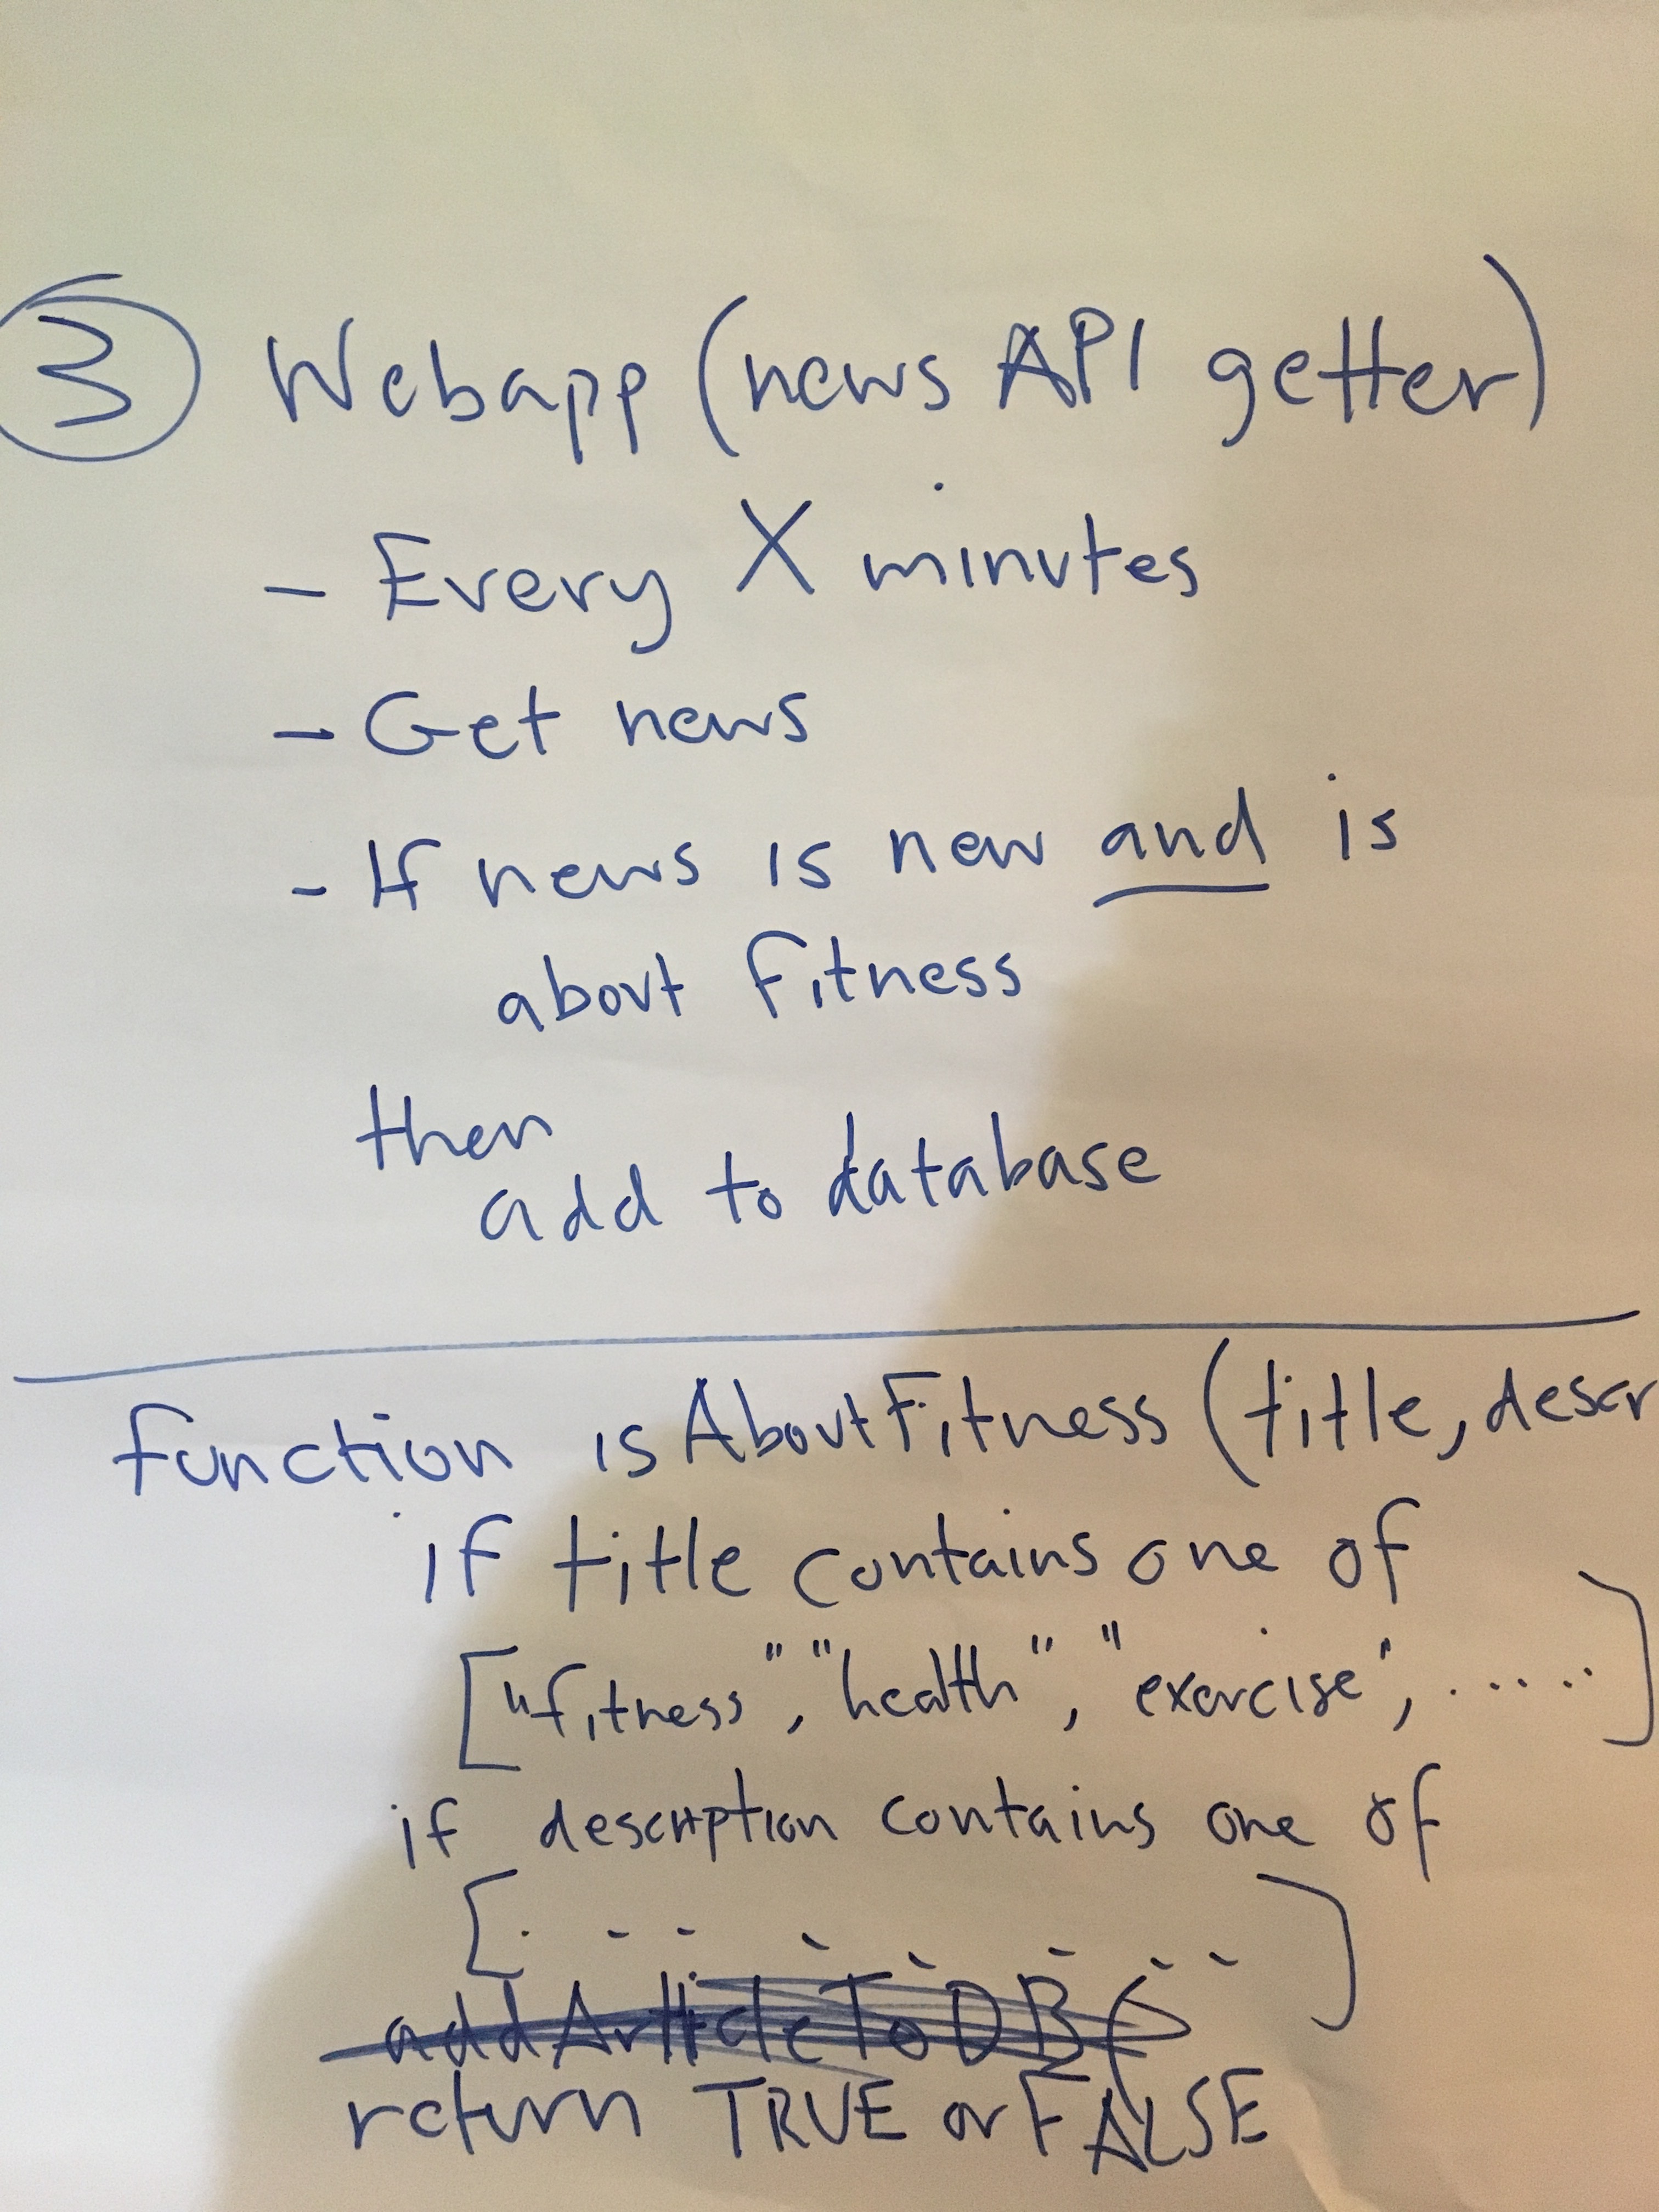 3 Webapp (news API getter)
- Every X minutes
- Get news
- If news is new and is
about fitness
then
add to database
function isAboutFitness (title, descr
if title contains one of
["fitness", "health", "exercise", .....]
if description contains one of
[. - - - - - - -]
addArticleToDB(
return TRUE or FALSE